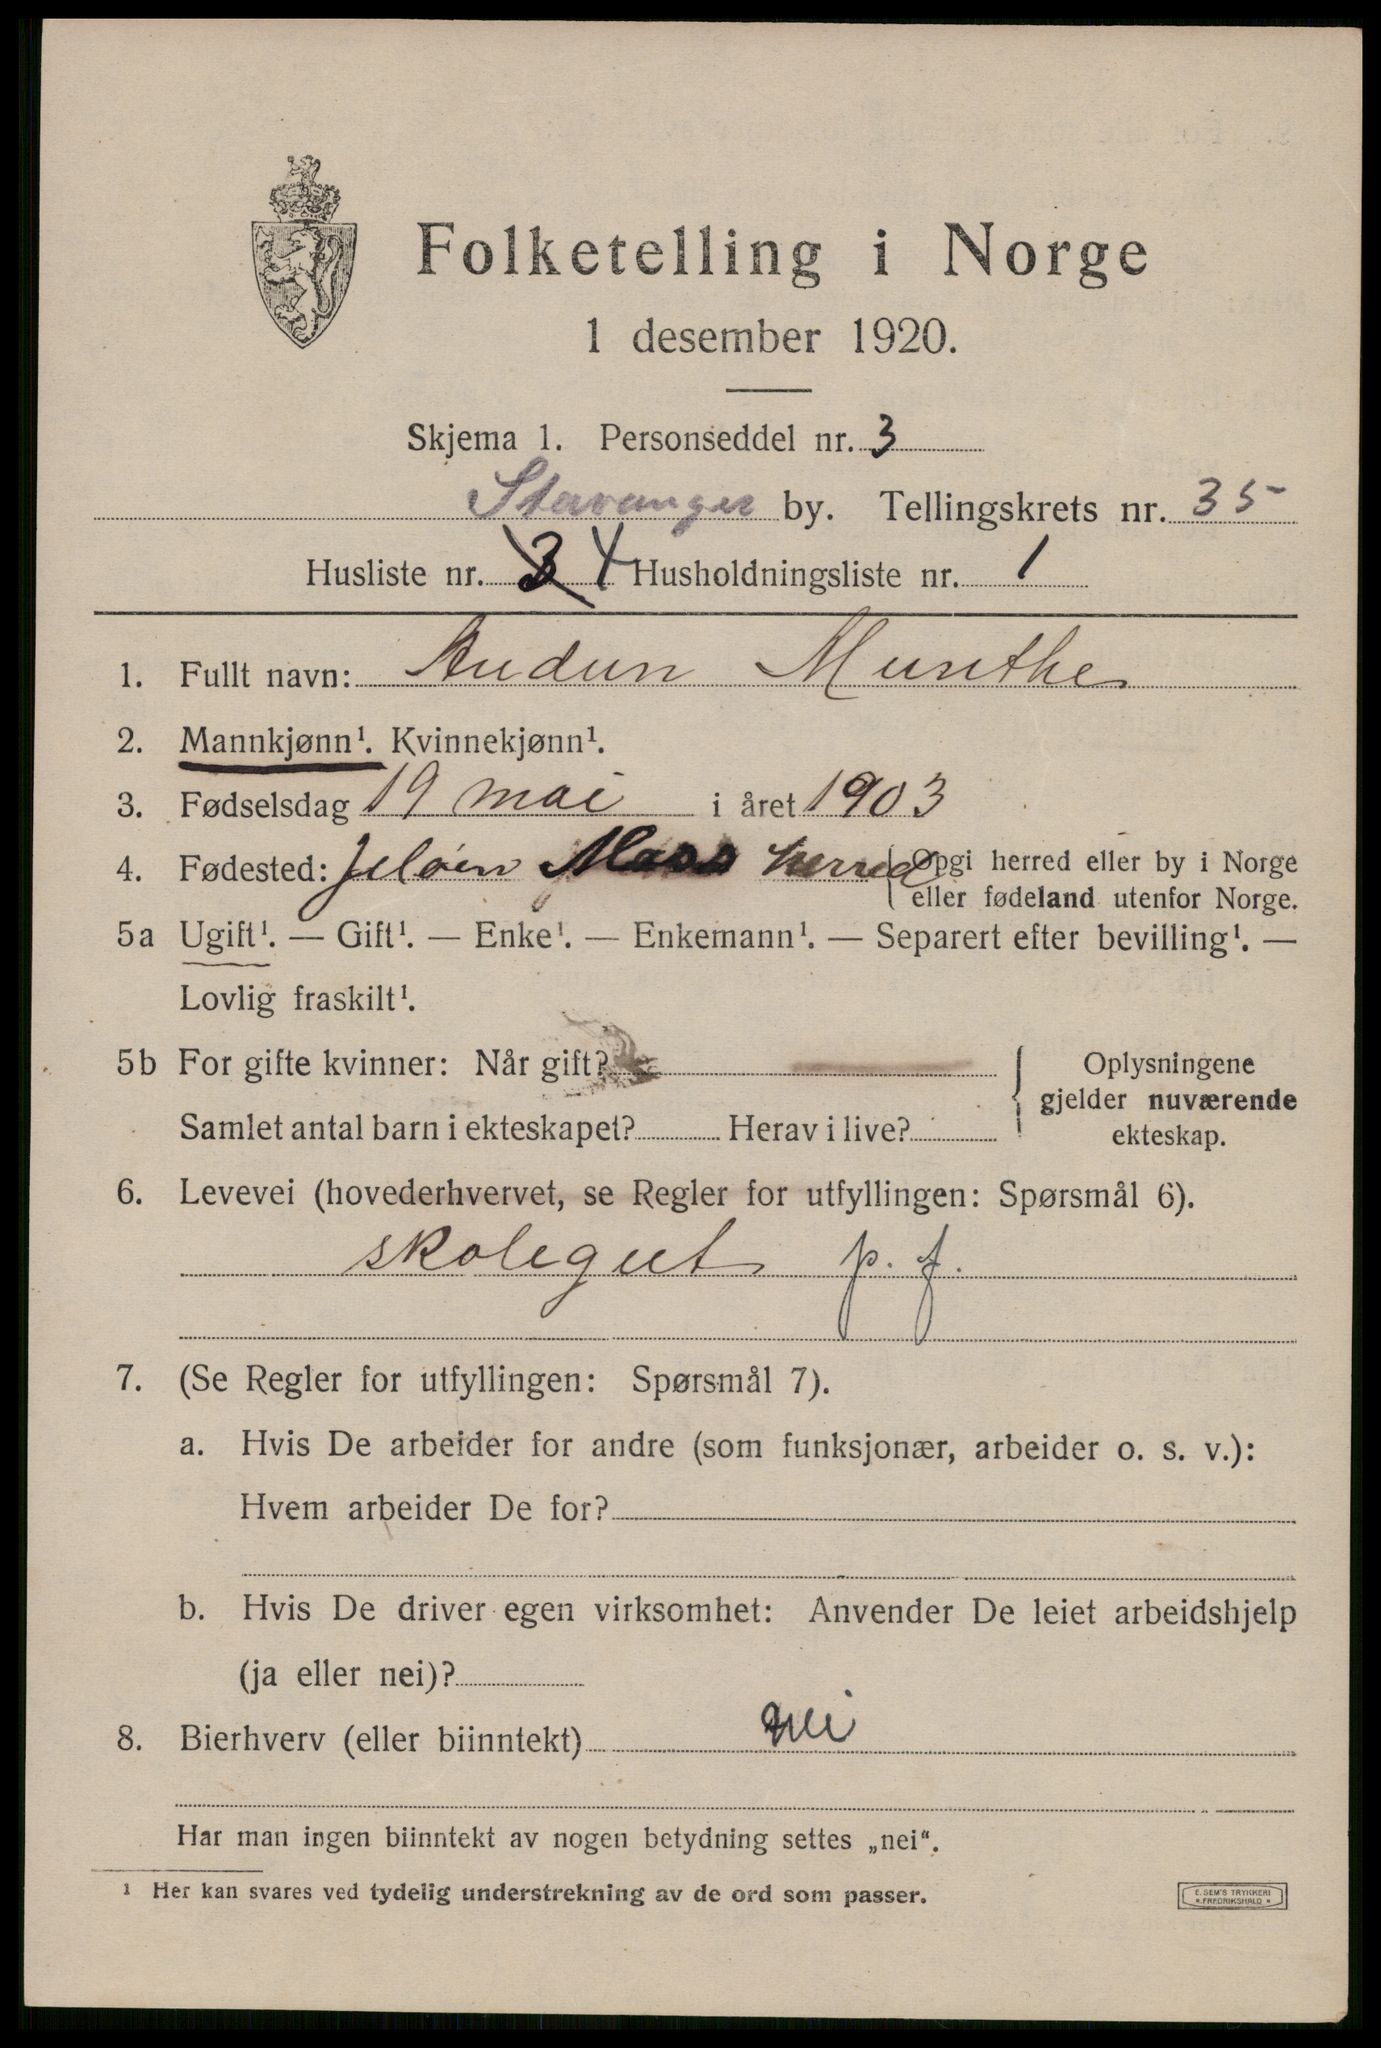 Folketelling i Norge
1 desember 1920.
Skjema 1. Personseddel nr. 3
Stavanger by. Tellingskrets nr. 35
Husliste nr. 3 4 Husholdningsliste nr. 1
1. Fullt navn: Audun Munthe
2. Mannkjønn¹. Kvinnekjønn¹.
3. Fødselsdag 19 mai i året 1903
4. Fødested: Jeløen Moss herred Opgi herred eller by i Norge
eller fødeland utenfor Norge.
5a Ugift¹. — Gift¹. — Enke¹. — Enkemann¹. — Separert efter bevilling¹. —
Lovlig fraskilt¹.
5b For gifte kvinner: Når gift? Oplysningene
gjelder nuværende
Samlet antal barn i ekteskapet? Herav i live? ekteskap.
6. Levevei (hovederhvervet, se Regler for utfyllingen: Spørsmål 6).
skolegut p. f.
7. (Se Regler for utfyllingen: Spørsmål 7).
a. Hvis De arbeider for andre (som funksjonær, arbeider o. s. v.):
Hvem arbeider De for?
b. Hvis De driver egen virksomhet: Anvender De leiet arbeidshjelp
(ja eller nei)?
8. Bierhverv (eller biinntekt) nei
Har man ingen biinntekt av nogen betydning settes „nei“.
¹ Her kan svares ved tydelig understrekning av de ord som passer.
E. SEM'S TRYKKERI
* FREDRIKSHALD *